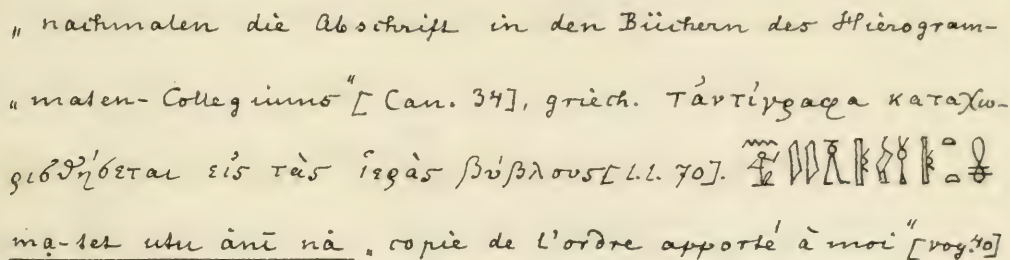 „ nachmalen die Abschrift in den Büchern des Hierogram-
„ maten-Collegiums" [Can. 34], griech. τἀντίγραφα καταχω-
ρισθήσεται εἰς τὰς ἱερὰς βύβλους [l.l. 70].
mạ-tet utu ȧnī nȧ „copie de l'ordre apporté à moi" [voy. 40]